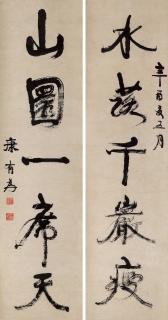 辛酉夏五月
水落千巖瘦
山圍一席天
康有為